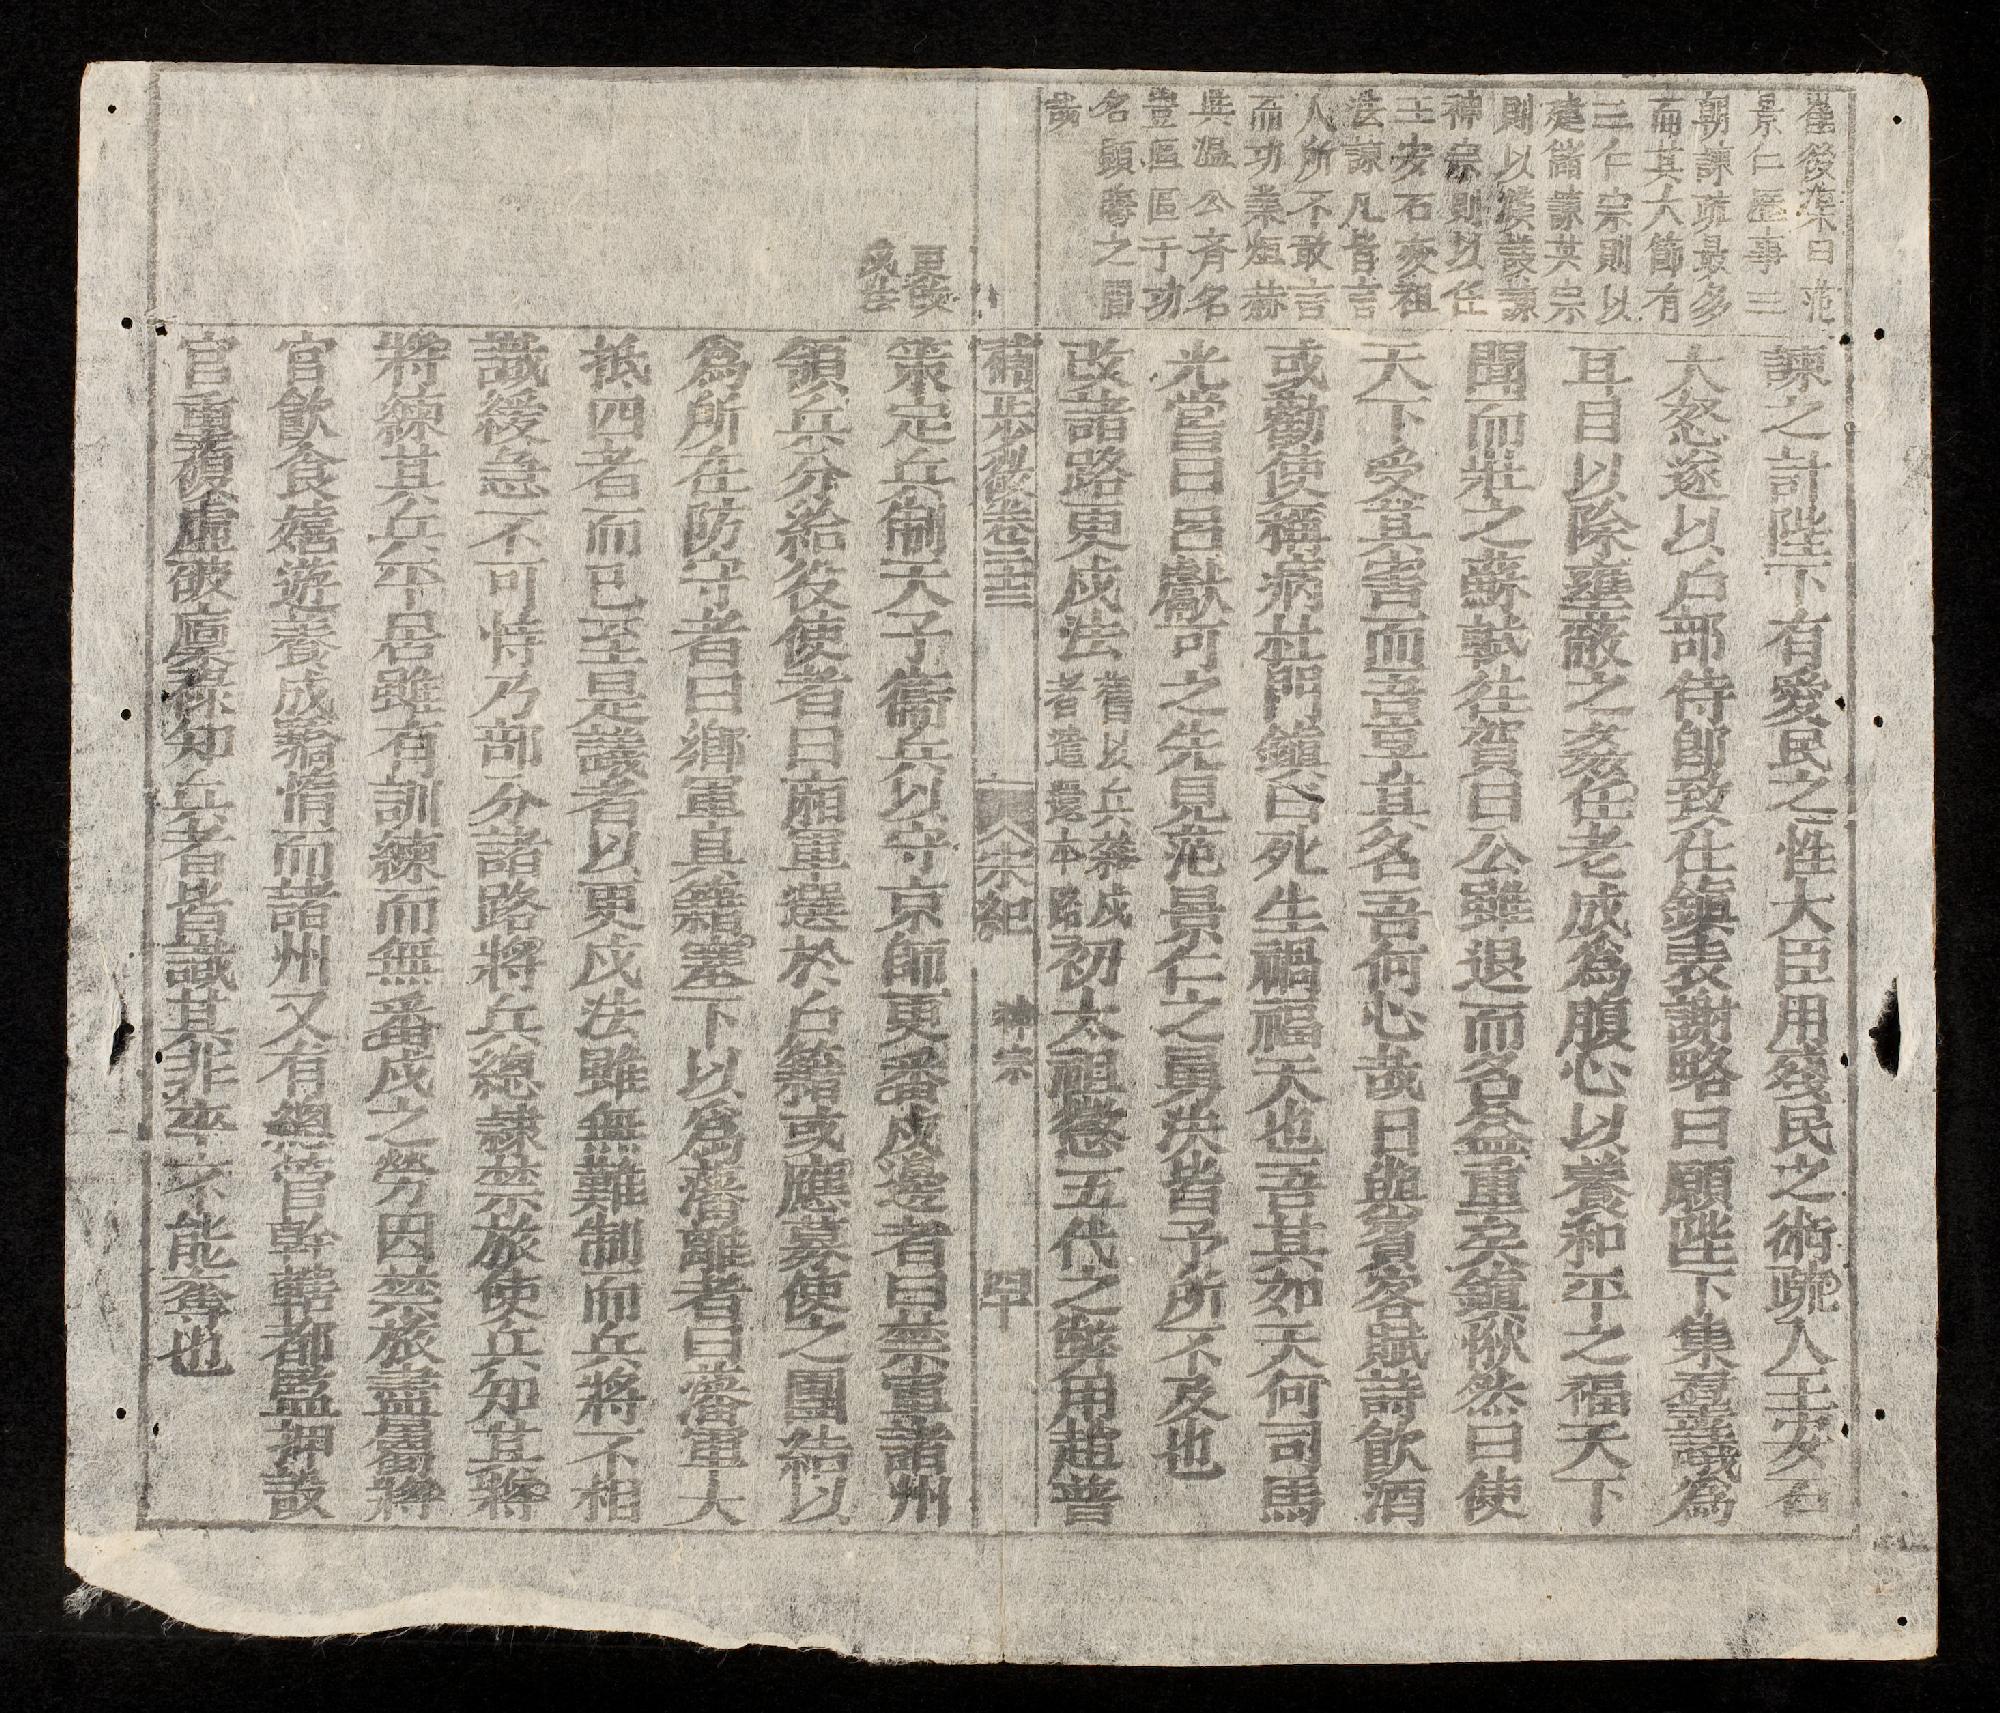 崔後渠曰范
景仁歷事三
朝諫疏最多
而其大節有
三仁宗則以
建儲諫英宗
則以濮議諫
神宗則以任
王安石变祖
法諫凡皆言
人所不敢言
而功業煊赫
與溫公齊名
豈區區于功
名顯晦之間
哉
諫之計陛下有愛民之性大臣用殘民之術疏入王安石
大怒遂以户部侍郎致仕鎮表謝略曰願陛下集羣議為
耳目以除壅蔽之姦任老成為腹心以養和平之福天下
聞而壯之蘇軾往賀曰公雖退而名益重矣鎮愀然曰使
天下受其害而吾享其名吾何心哉日與賓客賦詩飲酒
或勸使稱病杜門鎮曰死生禍福天也吾其如天何司馬
光嘗曰呂獻可之先見范景仁之勇決皆予所不及也
改諸路更戍法舊以兵募戍者遣還本路初太祖懲五代之弊用趙普
補歷 卷三十三 宋紀 神宗 四十
更變
戍法
策定兵制天子衞兵以守京師更番戍邊者曰禁軍諸州
領兵分給役使者曰廂軍選於户籍或應募使之團結以
為所在防守者曰鄉軍具籍塞下以為藩離者曰藩軍大
抵四者而已至是議者以更戍法雖無難制而兵將不相
識緩急不可恃乃部分諸路將兵總隷禁旅使兵知其將
將練其兵平居雖有訓練而無番戍之勞因禁旅盡屬將
官飲食嬉遊養成驕惰而諸州又有總管幹轄都監押設
官重複虛破廩祿知兵者皆識其非卒不能奪也